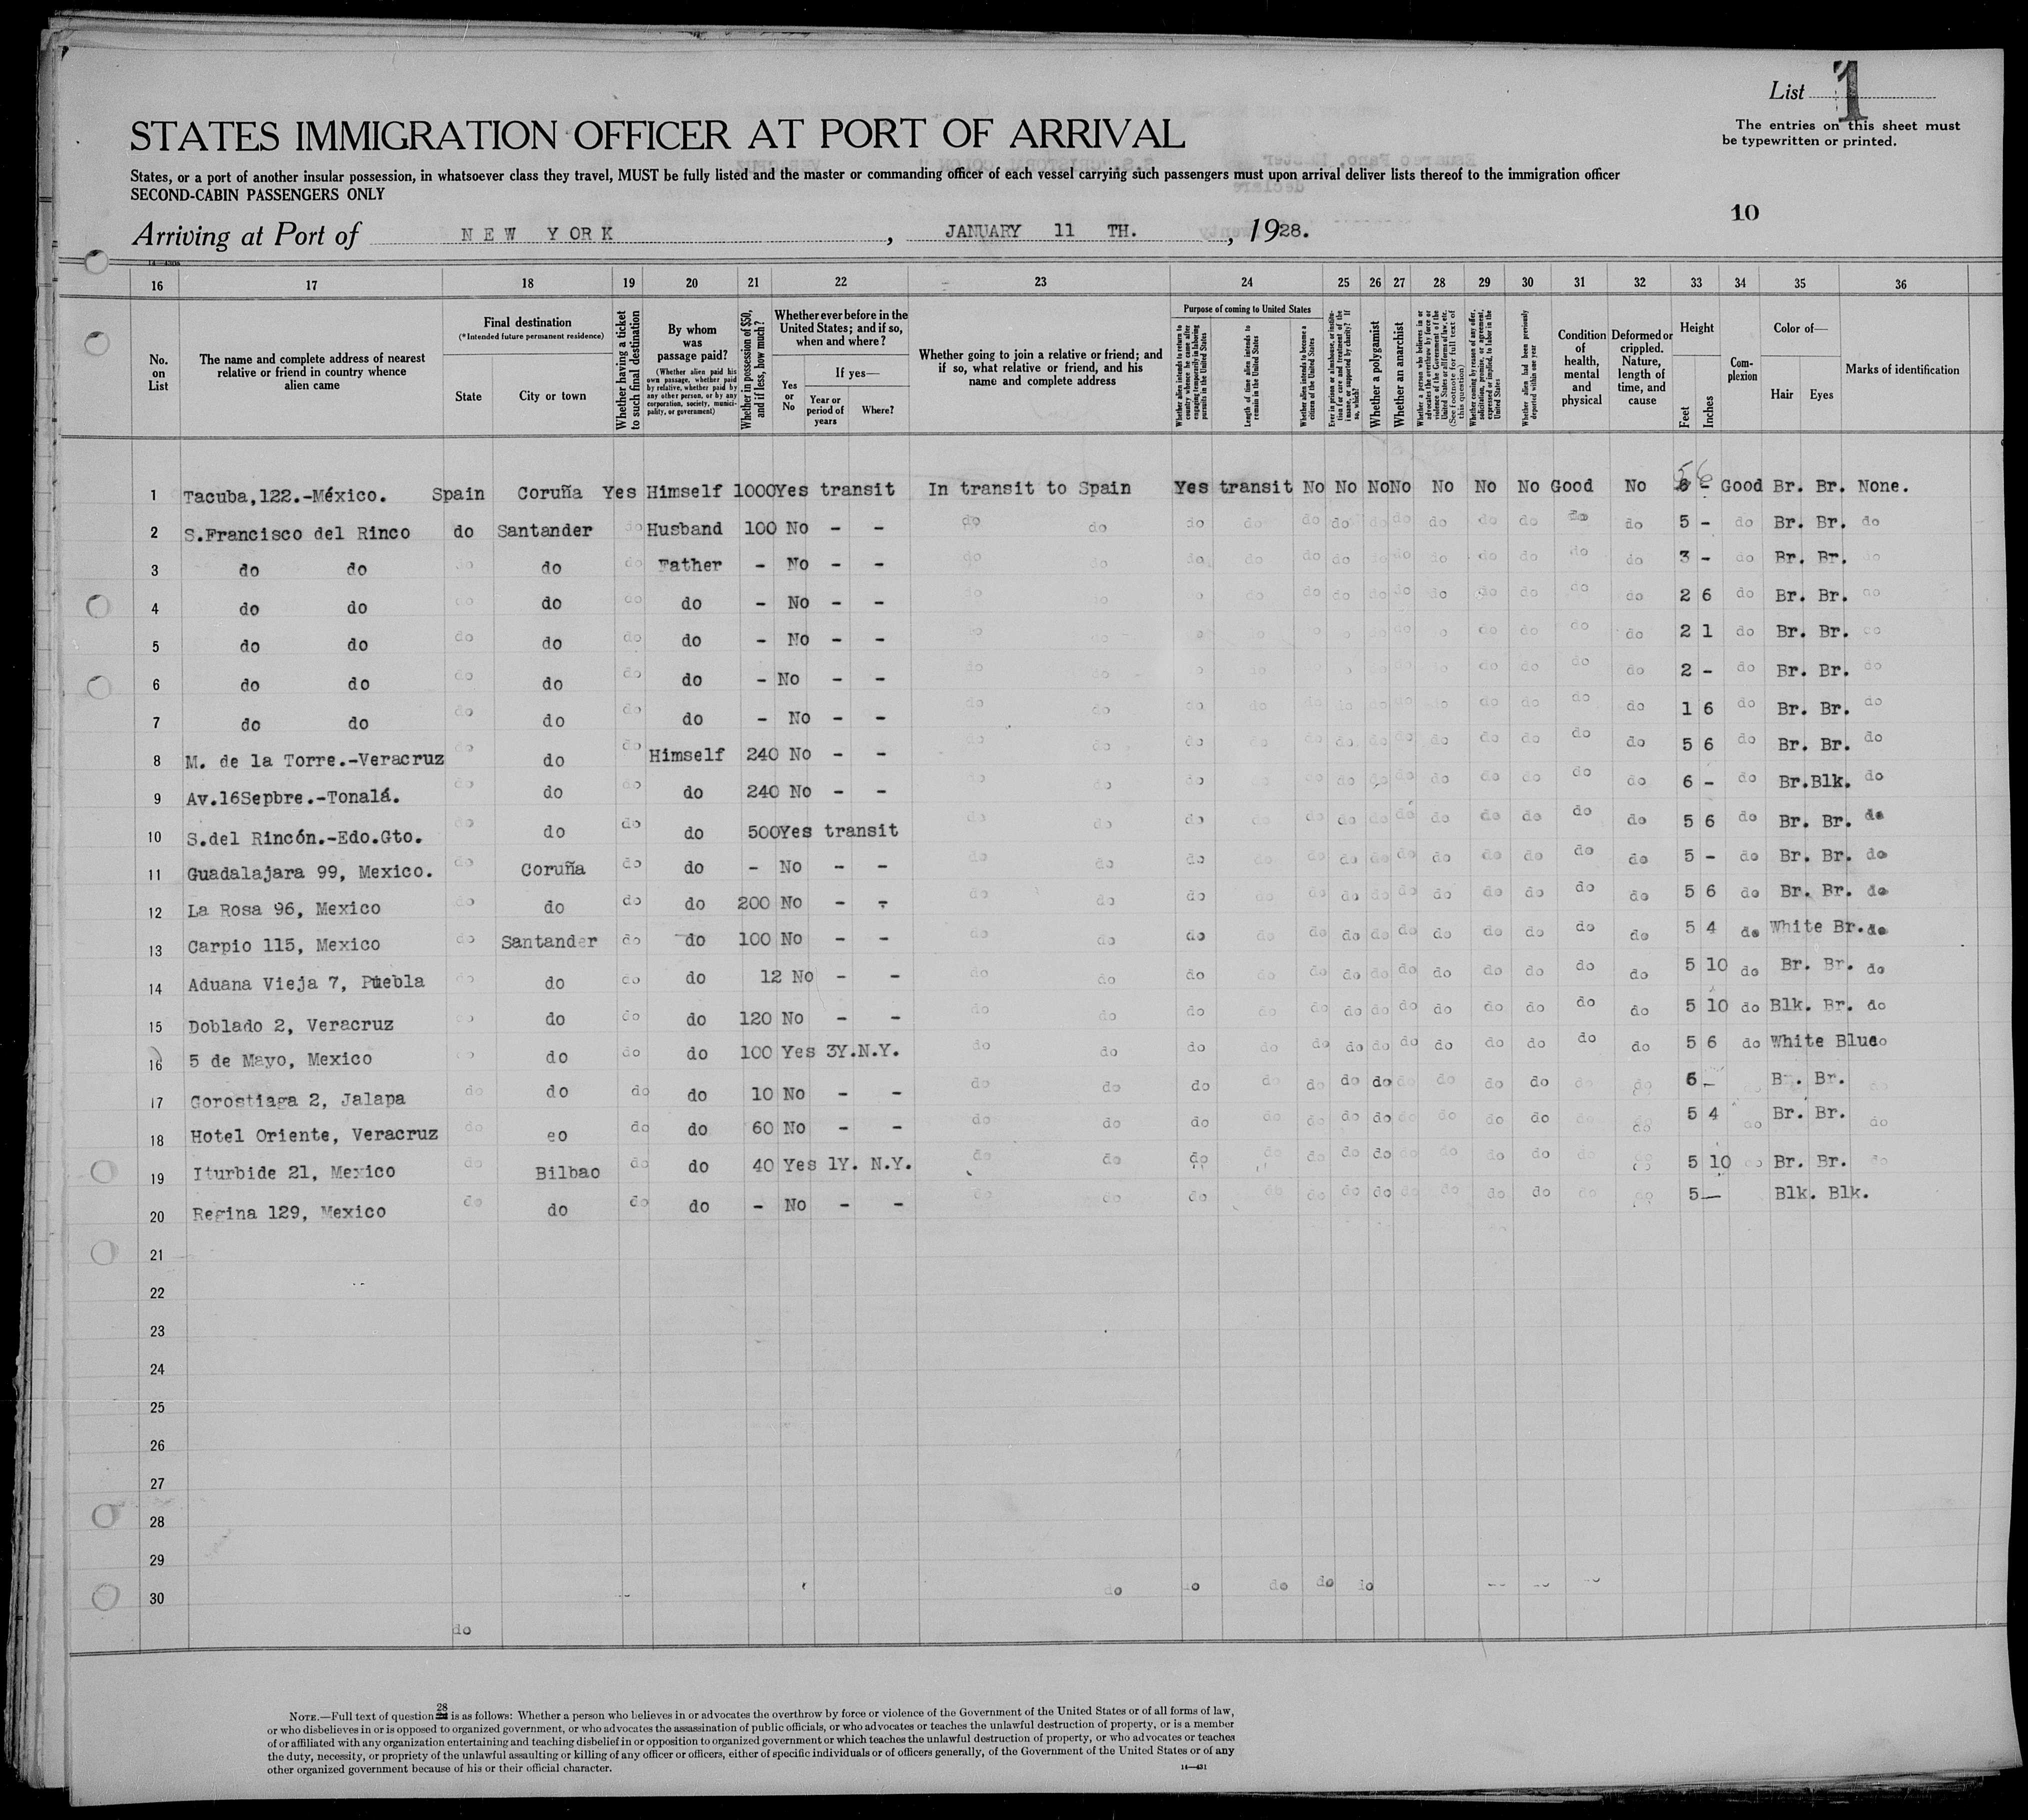 List 1
The entries on this sheet must
be typewritten or printed.
STATES IMMIGRATION OFFICER AT PORT OF ARRIVAL
States, or a port of another insular possession, in whatsoever class they travel, MUST be fully listed and the master or commanding officer of each vessel carrying such passengers must upon arrival deliver lists thereof to the immigration officer
SECOND-CABIN PASSENGERS ONLY
10
Arriving at Port of NEW YORK, JANUARY 11 TH., 1928.
16 17 18 19 20 21 22 23 24 25 26 27 28 29 30 31 32 33 34 35 36
No. on List
The name and complete address of nearest relative or friend in country whence alien came
Final destination
(*Intended future permanent residence)
State
City or town
Whether having a ticket to such final destination
By whom was passage paid?
(Whether alien paid his own passage, whether paid by relative, whether paid by any other person, or by any corporation, society, municipality, or government)
Whether in possession of $50, and if less, how much?
Whether ever before in the United States; and if so, when and where?
Yes or No
If yes—
Year or period of years
Where?
Whether going to join a relative or friend; and if so, what relative or friend, and his name and complete address
Purpose of coming to United States
Whether alien intends to return to country whence he came after engaging temporarily in laboring pursuits in the United States
Length of time alien intends to remain in the United States
Whether alien intends to become a citizen of the United States
Whether a polygamist
Whether an anarchist
Whether alien had been previously deported within one year
Condition of health, mental and physical
Deformed or crippled. Nature, length of time, and cause
Height
Feet
Inches
Complexion
Color of—
Hair
Eyes
Marks of identification
1 Tacuba,122.-México. Spain Coruña Yes Himself 1000 Yes transit In transit to Spain Yes transit No No No No No No No Good No 5 6 Good Br. Br. None.
2 S.Francisco del Rinco do Santander do Husband 100 No - - do do do do do do do do do do do do do 5 - do Br. Br. do
3 do do do do do Father - No - - do do do do do do do do do do do do do 3 - do Br. Br. do
4 do do do do do do - No - - do do do do do do do do do do do do 2 6 do Br. Br. do
5 do do do do do do - No - - do do do do do do do do do 2 1 do Br. Br. do
6 do do do do do do - No - - do do do do do do do do 2 - do Br. Br. do
7 do do do do do do - No - - do do do do do do do do do do do do do 1 6 do Br. Br. do
8 M. de la Torre.-Veracruz do do do Himself 240 No - - do do do do do do do do do do do do do 5 6 do Br. Br. do
9 Av.16Sepbre.-Tonalá. do do do do 240 No - - do do do do do do do do do do do do do 6 - do Br. Blk. do
10 S.del Rincón.-Edo.Gto. do do do do 500 Yes transit do do do do do do do do do do do do do 5 6 do Br. Br. do
11 Guadalajara 99, Mexico. do Coruña do do - No - - do do do do do do do do do do do do do 5 - do Br. Br. do
12 La Rosa 96, Mexico do do do do 200 No - - do do do do do do do do do do do do do 5 6 do Br. Br. do
13 Carpio 115, Mexico do Santander do do 100 No - - do do do do do do do do do do do do do 5 4 do White Br. do
14 Aduana Vieja 7, Puebla do do do do 12 No - - do do do do do do do do do do do do do 5 10 do Br. Br. do
15 Doblado 2, Veracruz do do do do 120 No - - do do do do do do do do do do do do do 5 10 do Blk. Br. do
16 5 de Mayo, Mexico do do do do 100 Yes 3Y. N.Y. do do do do do do do do do do do do do 5 6 do White Blue do
17 Gorostiaga 2, Jalapa do do do do 10 No - - do do do do do do do do do do do do do 6 - Br. Br. do
18 Hotel Oriente, Veracruz do eo do do 60 No - - do do do do do do do do do do do do do 5 4 do Br. Br. do
19 Iturbide 21, Mexico do Bilbao do do 40 Yes 1Y. N.Y. do do do do do do do do do do do do do 5 10 do Br. Br. do
20 Regina 129, Mexico do do do do - No - - do do do do do do do do do do do do do 5 - Blk. Blk.
21
22
23
24
25
26
27
28
29
30 do do do do do
do
28
NOTE.—Full text of question is as follows: Whether a person who believes in or advocates the overthrow by force or violence of the Government of the United States or of all forms of law,
or who disbelieves in or is opposed to organized government, or who advocates the assassination of public officials, or who advocates or teaches the unlawful destruction of property, or is a member
of or affiliated with any organization entertaining and teaching disbelief in or opposition to organized government or which teaches the unlawful destruction of property, or who advocates or teaches
the duty, necessity, or propriety of the unlawful assaulting or killing of any officer or officers, either of specific individuals or of officers generally, of the Government of the United States or of any
other organized government because of his or their official character.
14—431